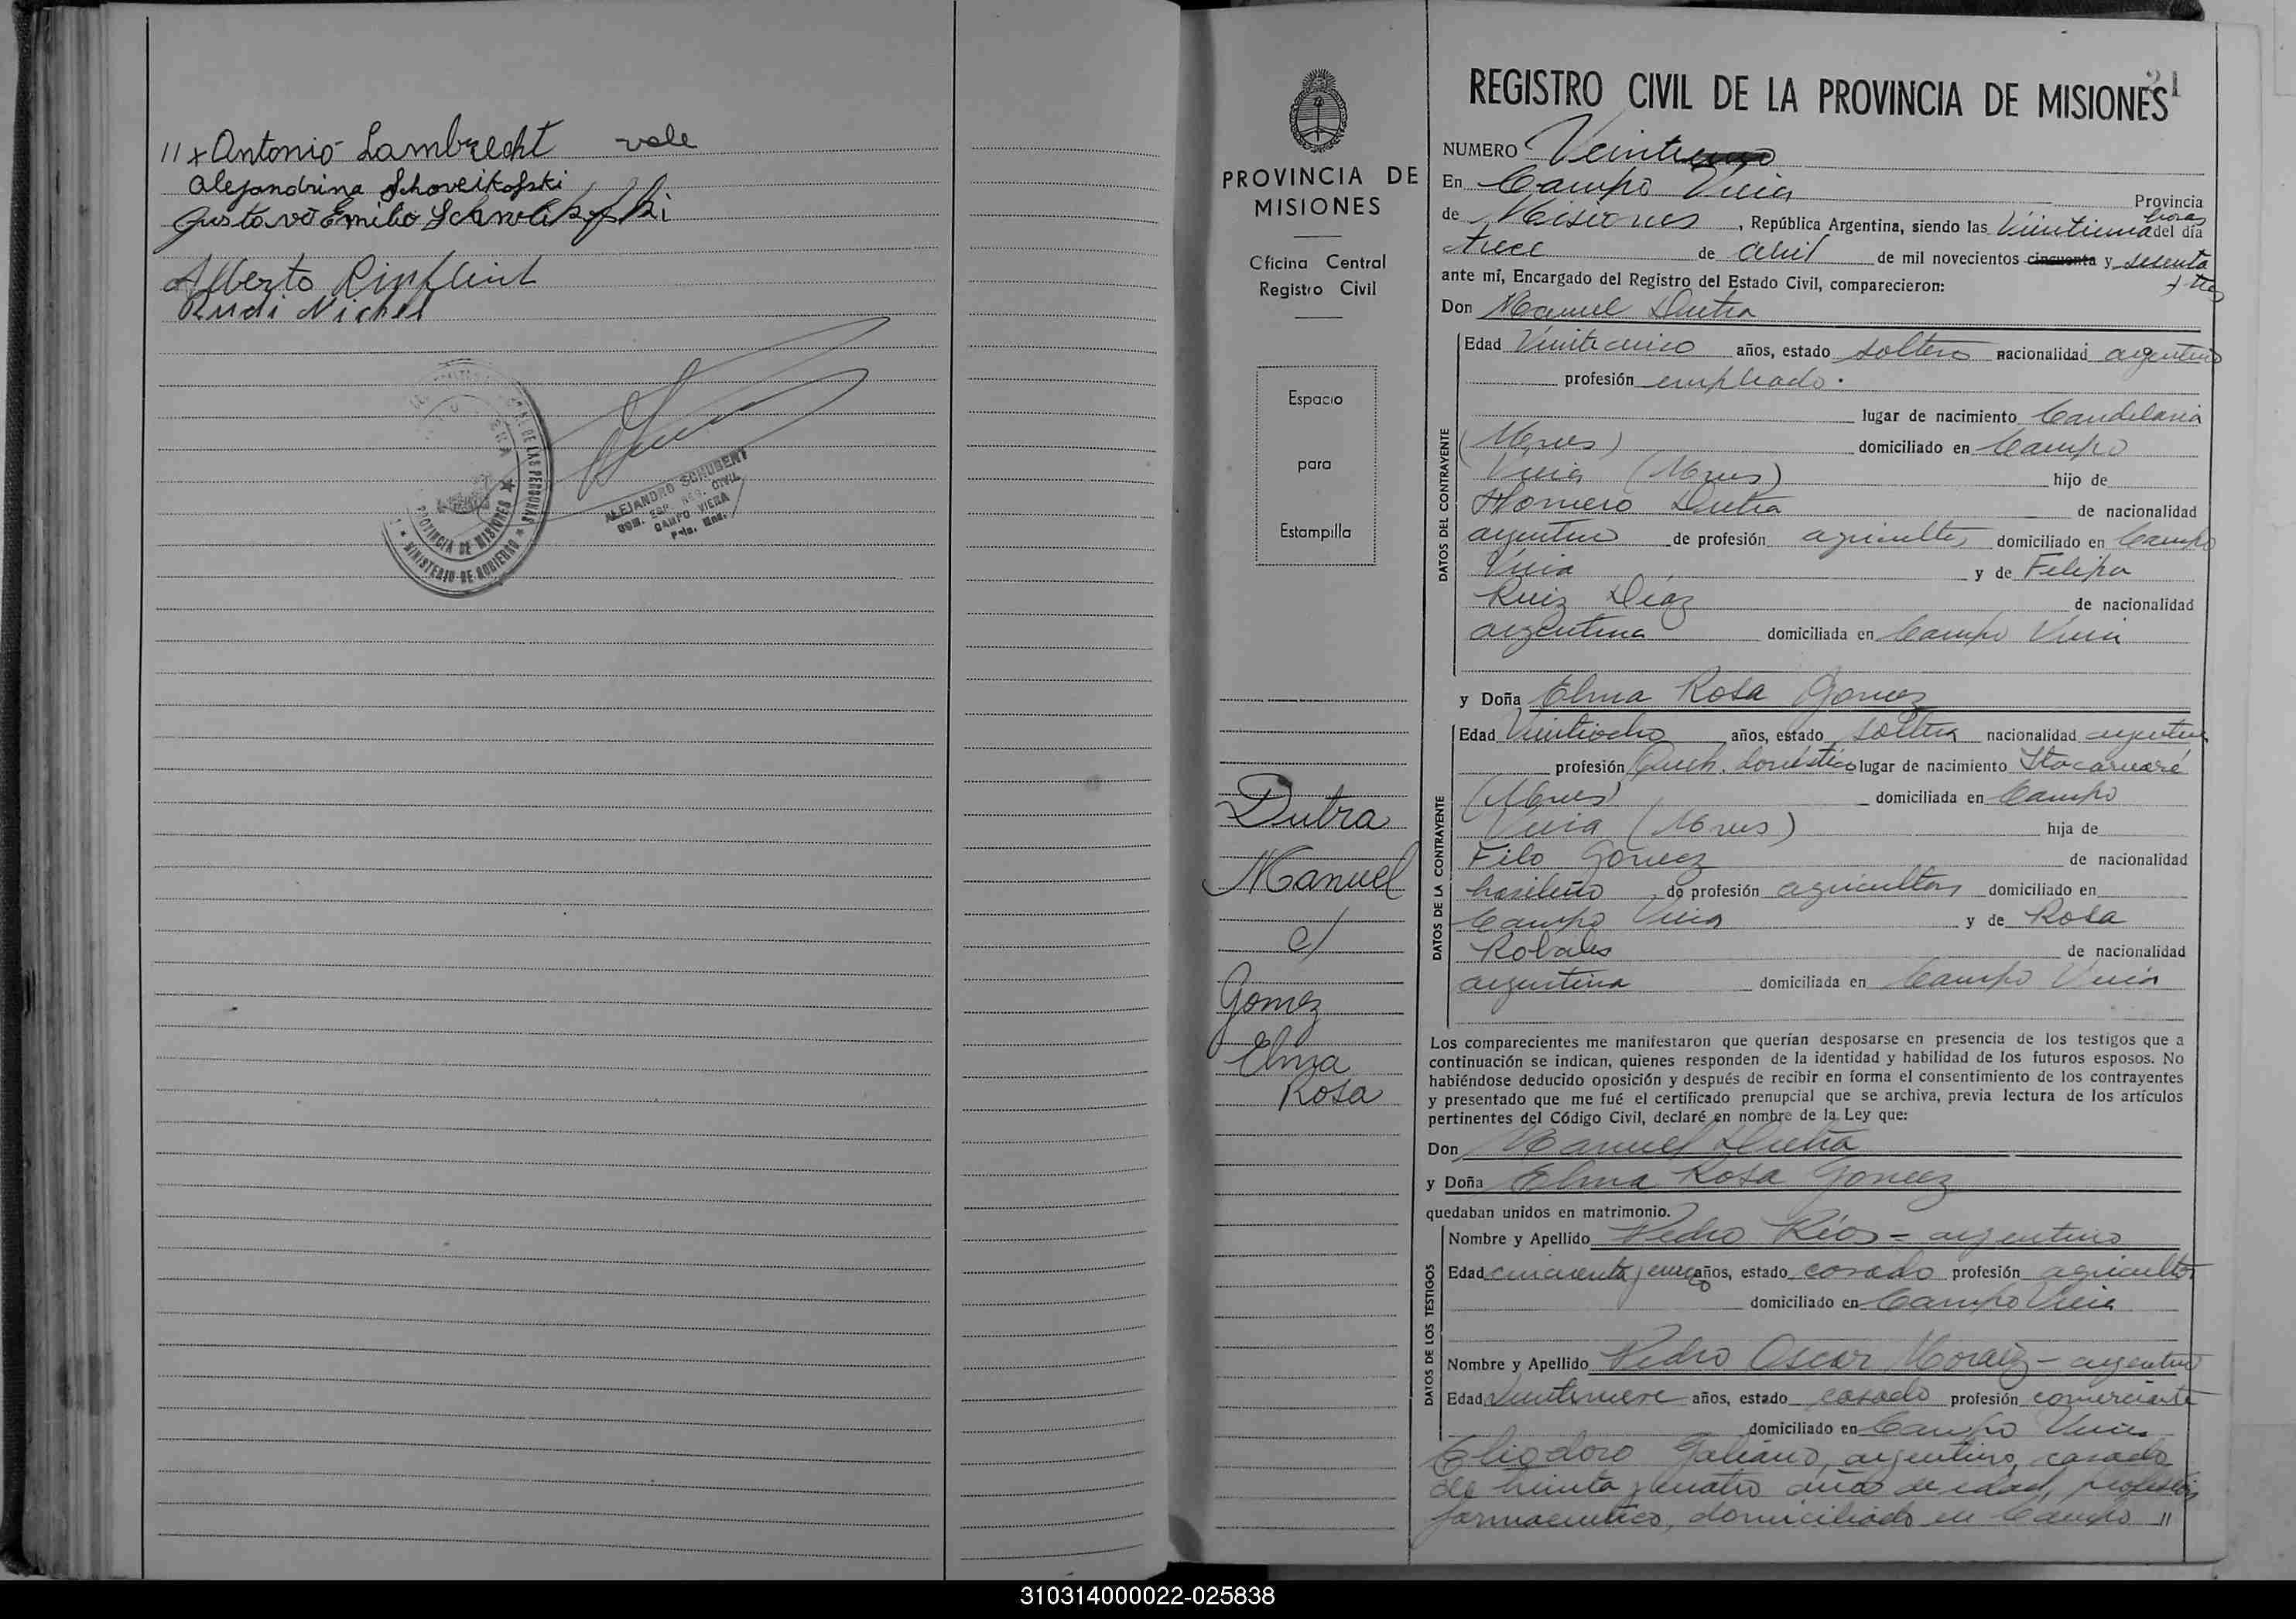 11 x Antonio Lambrecht vale
Alejandrina Schoveikofski
Gustavo Emilio
Alberto
Rudi Nichel
PROVINCIA DE MISIONES
MINISTERIO DE GOBIERNO
DE LAS PERSONAS
ALEJANDRO SCHUBERT
REG. CIVIL
CAMPO VIERA
21
REGISTRO CIVIL DE LA PROVINCIA DE MISIONES
PROVINCIA DE
MISIONES
Oficina Central
Registro Civil
Espacio
para
Estampilla
Dutra
Manuel
c/
Gomez
Elma
Rosa
NUMERO
En Campo Viera Provincia
de Misiones, República Argentina, siendo las Veintiuna horas del día
trece de abril de mil novecientos cincuenta y setenta
y tres
ante mí, Encargado del Registro del Estado Civil, comparecieron:
Don Manuel Dutra
DATOS DEL CONTRAYENTE
Edad Veinticinco años, estado soltero nacionalidad argentino
profesión empleado.
lugar de nacimiento Candelaria
(Mnes) domiciliado en Campo
Viera (Mnes) hijo de
Homero Dutra de nacionalidad
argentino de profesión agricultor domiciliado en Campo
Viera y de Filipa
Ruiz Díaz de nacionalidad
argentina domiciliada en Campo Viera
y Doña Elma Rosa Gomez
DATOS DE LA CONTRAYENTE
Edad Veintiocho años, estado soltera nacionalidad argentina
profesión Queh. doméstico lugar de nacimiento Itacaruaré
(Mnes) domiciliada en Campo
Viera (Mnes) hija de
Filo Gomez de nacionalidad
brasileño de profesión agricultor domiciliado en
Campo Viera y de Rosa
Robales de nacionalidad
argentina domiciliada en Campo Viera
Los comparecientes me manifestaron que querían desposarse en presencia de los testigos que a
continuación se indican, quienes responden de la identidad y habilidad de los futuros esposos. No
habiéndose deducido oposición y después de recibir en forma el consentimiento de los contrayentes
y presentado que me fué el certificado prenupcial que se archiva, previa lectura de los artículos
pertinentes del Código Civil, declaré en nombre de la Ley que:
Don Manuel Dutra
y Doña Elma Rosa Gomez
quedaban unidos en matrimonio.
DATOS DE LOS TESTIGOS
Nombre y Apellido Pedro Ríos - argentino
Edad cincuenta y años, estado casado profesión agricultor
domiciliado en Campo Viera
Nombre y Apellido Pedro Oscar Moraez - argentino
Edad Veintinueve años, estado casado profesión comerciante
domiciliado en Campo Viera
Eliodoro Galiano, argentino, casado
de treinta y cuatro años de edad, profesión
farmaceutico, domiciliado en Campo //
310314000022-025838